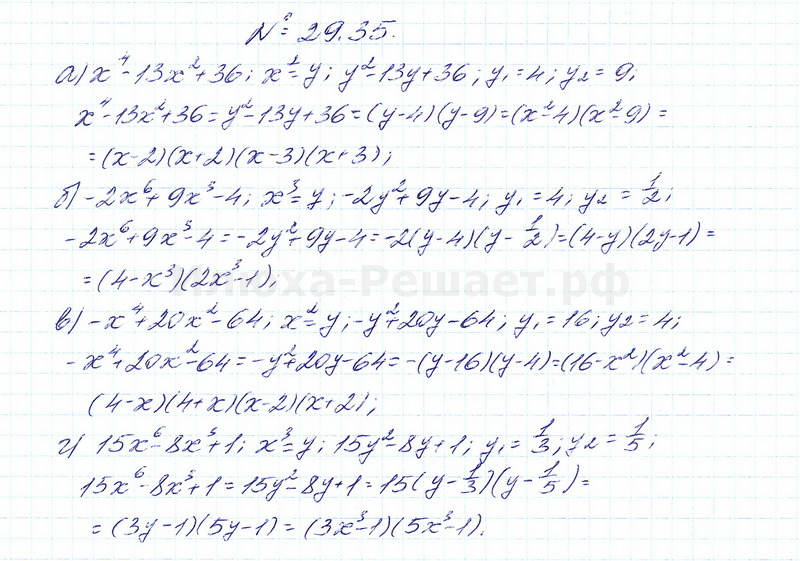 № 29.35.
а) x⁴-13x²+36; x²=y; y²-13y+36; y₁=4; y₂=9;
x⁴-13x²+36=y²-13y+36=(y-4)(y-9)=(x²-4)(x²-9)=
=(x-2)(x+2)(x-3)(x+3);
б) -2x⁶+9x³-4; x³=y; -2y²+9y-4; y₁=4; y₂=1/2;
-2x⁶+9x³-4=-2y²+9y-4=-2(y-4)(y-1/2)=(4-y)(2y-1)=
=(4-x³)(2x³-1);
в) -x⁴+20x²-64; x²=y; -y²+20y-64; y₁=16; y₂=4;
-x⁴+20x²-64=-y²+20y-64=-(y-16)(y-4)=(16-x²)(x²-4)=
(4-x)(4+x)(x-2)(x+2);
г) 15x⁶-8x³+1; x³=y; 15y²-8y+1; y₁=1/3; y₂=1/5;
15x⁶-8x³+1=15y²-8y+1=15(y-1/3)(y-1/5)=
=(3y-1)(5y-1)=(3x³-1)(5x³-1).